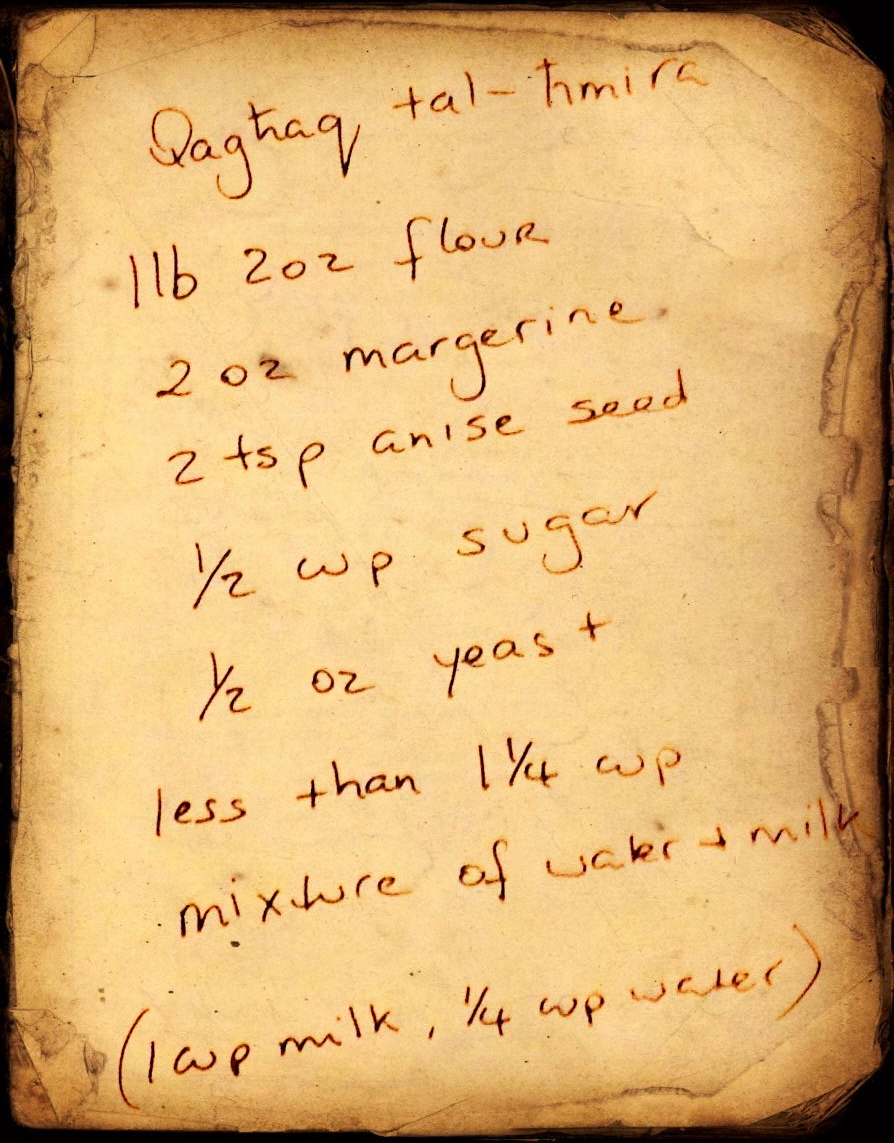 Qagħaq tal-ħmira
1lb 2oz flour
2 oz margerine
2 tsp anise seed
1/2 cup sugar
1/2 oz yeast
less than 1 1/4 cup
mixture of water + milk
(1 cup milk, 1/4 cup water)